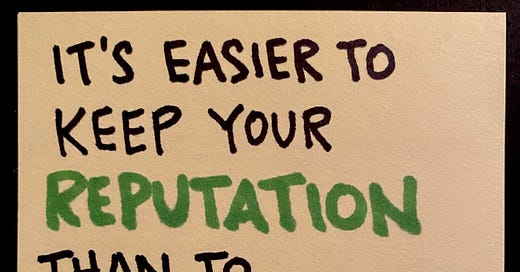 IT'S EASIER TO
KEEP YOUR
REPUTATION
THAN TO